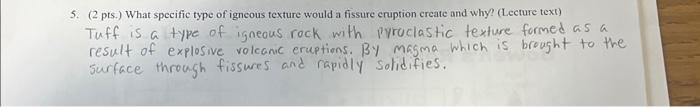 5. (2 pts.) What specific type of igneous texture would a fissure eruption create and why? (Lecture text)
Tuff is a type of igneous rock with pyroclastic texture formed as a
result of explosive volcanic eruptions. By magma which is brought to the
surface through fissures and rapidly solidifies.